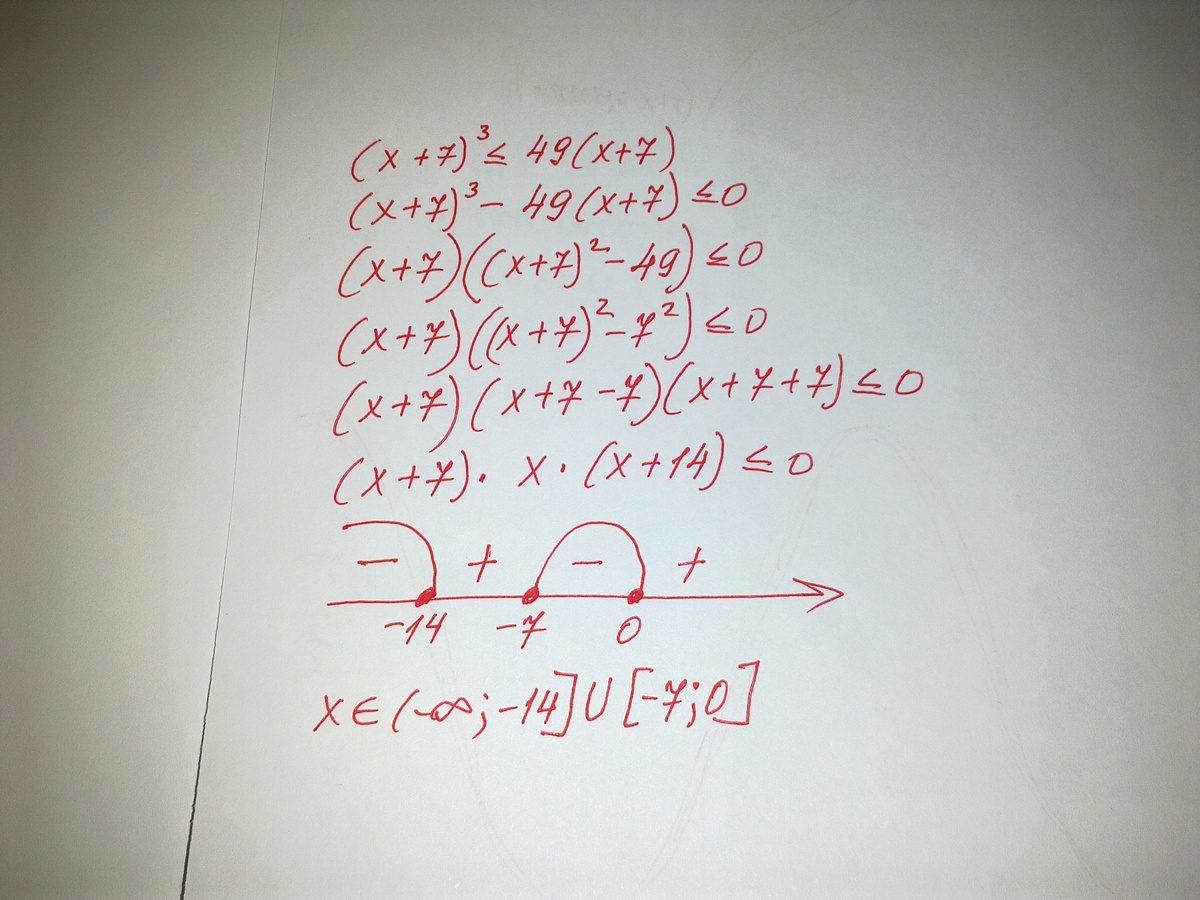 (x+7)³ ≤ 49(x+7)
(x+7)³ - 49(x+7) ≤ 0
(x+7)((x+7)² - 49) ≤ 0
(x+7)((x+7)² - 7²) ≤ 0
(x+7)(x+7-7)(x+7+7) ≤ 0
(x+7) · x · (x+14) ≤ 0
- + - +
-14 -7 0
x∈(-∞;-14]∪[-7;0]